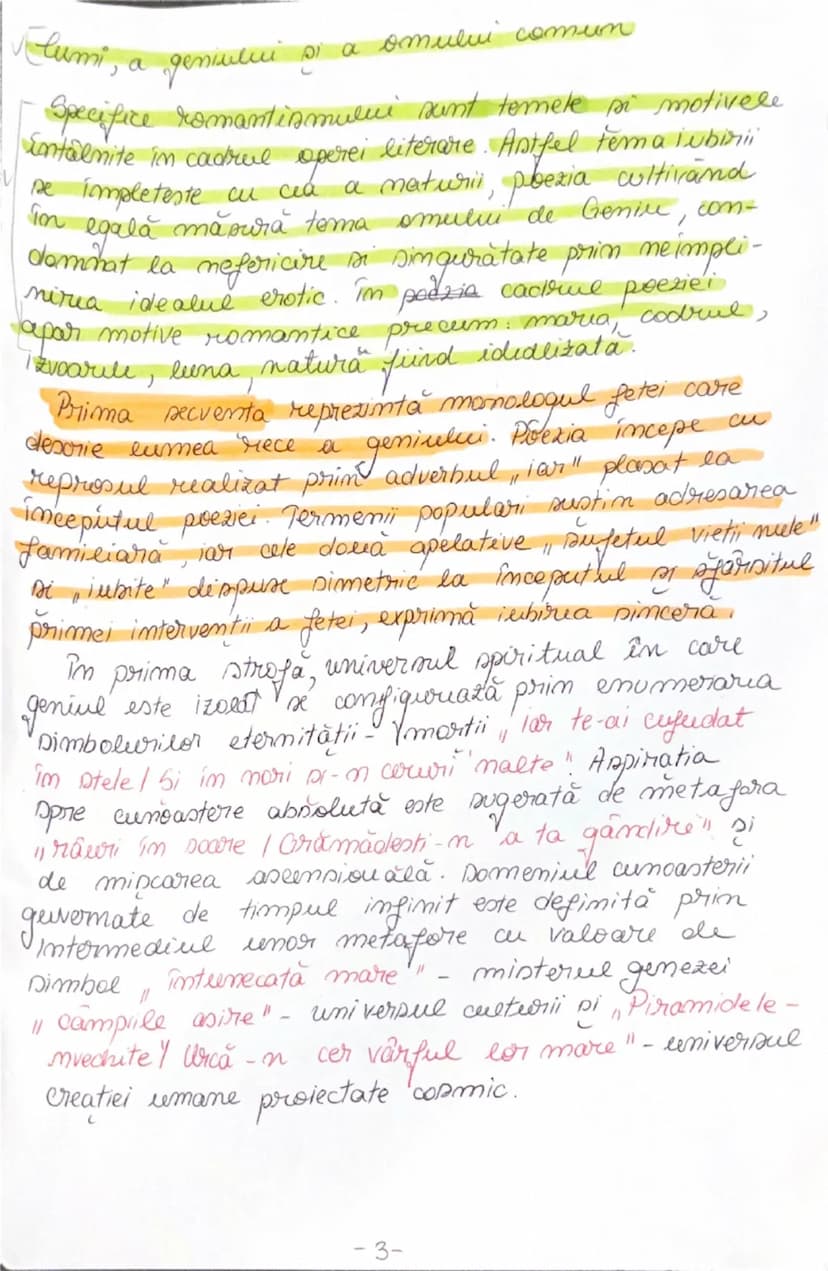 lumi, a geniului și a omului comun
Specifice romantismului sunt temele și motivele
întâlnite în cadrul operei literare. Astfel tema iubirii
se împletește cu cea a naturii, poezia cultivând
în egală măsură tema omului de Geniu, con-
damnat la nefericire și singurătate prin neîmpli-
nirea idealul erotic. În poezia cadrul poeziei
apar motive romantice precum: marea, codrul,
izvoarele, luna, natură fiind idealizată.
Prima secvența reprezintă monologul fetei care
descrie lumea rece a geniului. Poezia începe cu
reproșul realizat prin adverbul „iar" plasat la
începutul poeziei. Termenii populari susțin adresarea
familiară, iar cele două apelative „sufletul vieții mele"
și „iubite" dispuse simetric la începutul și sfârșitul
primei intervenții a fetei, exprimă iubirea sinceră.
În prima strofă, universul spiritual în care
geniul este izolat se configurează prin enumerarea
simbolurilor eternității - morții „iar te-ai cufudat
în stele / Și în nori și-n ceruri 'nalte". Aspirația
spre cunoaștere absolută este sugerată de metafora
„râuri în soare / Grămădești-n a ta gândire" și
de mișcarea ascensiouală. Domeniul cunoașterii
guvernate de timpul infinit este definită prin
intermediul unor metafore cu valoare de
simbol „întunecată mare" - misterul genezei
„câmpiile asire" - universul culturii și „Piramidele-
nvechite / Urcă-n cer vârful lor mare" - universul
creației umane proiectate cosmic.
-3-